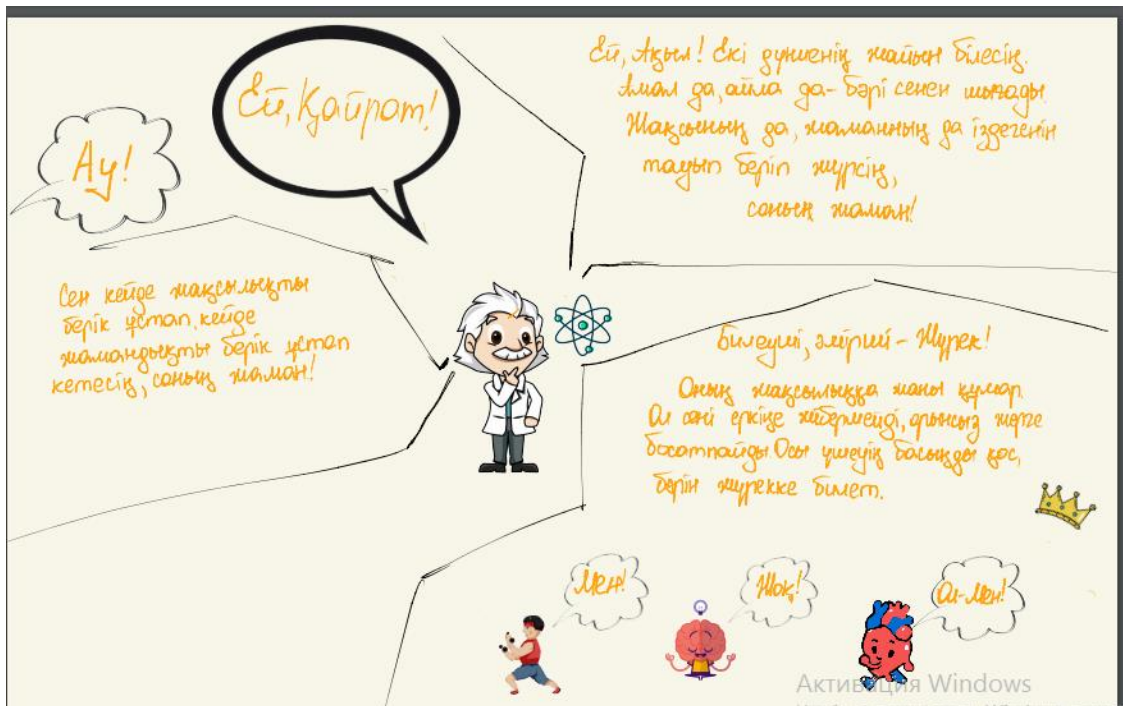 Ау!
Ей, Қайрат!
Ей, Ақыл! Екі дүниенің жайын білесің.
Амал да, айла да- бәрі сенен шығады.
Жақсының да, жаманның да іздегенін
тауып беріп жүрсің,
соның жаман!
Сен кейде жақсылықты
берік ұстап, кейде
жамандықты берік ұстап
кетесің, соның жаман!
Билеуші, әмірші - Жүрек!
Оның жақсылыққа жаны құмар.
Ол сені еркіңе жібермейді, орынсыз жерге
босатпайды. Осы үшеуің басыңды қос,
бәрін жүрекке билет.
Мен!
Жоқ!
Ол-Мен!
Активация Windows